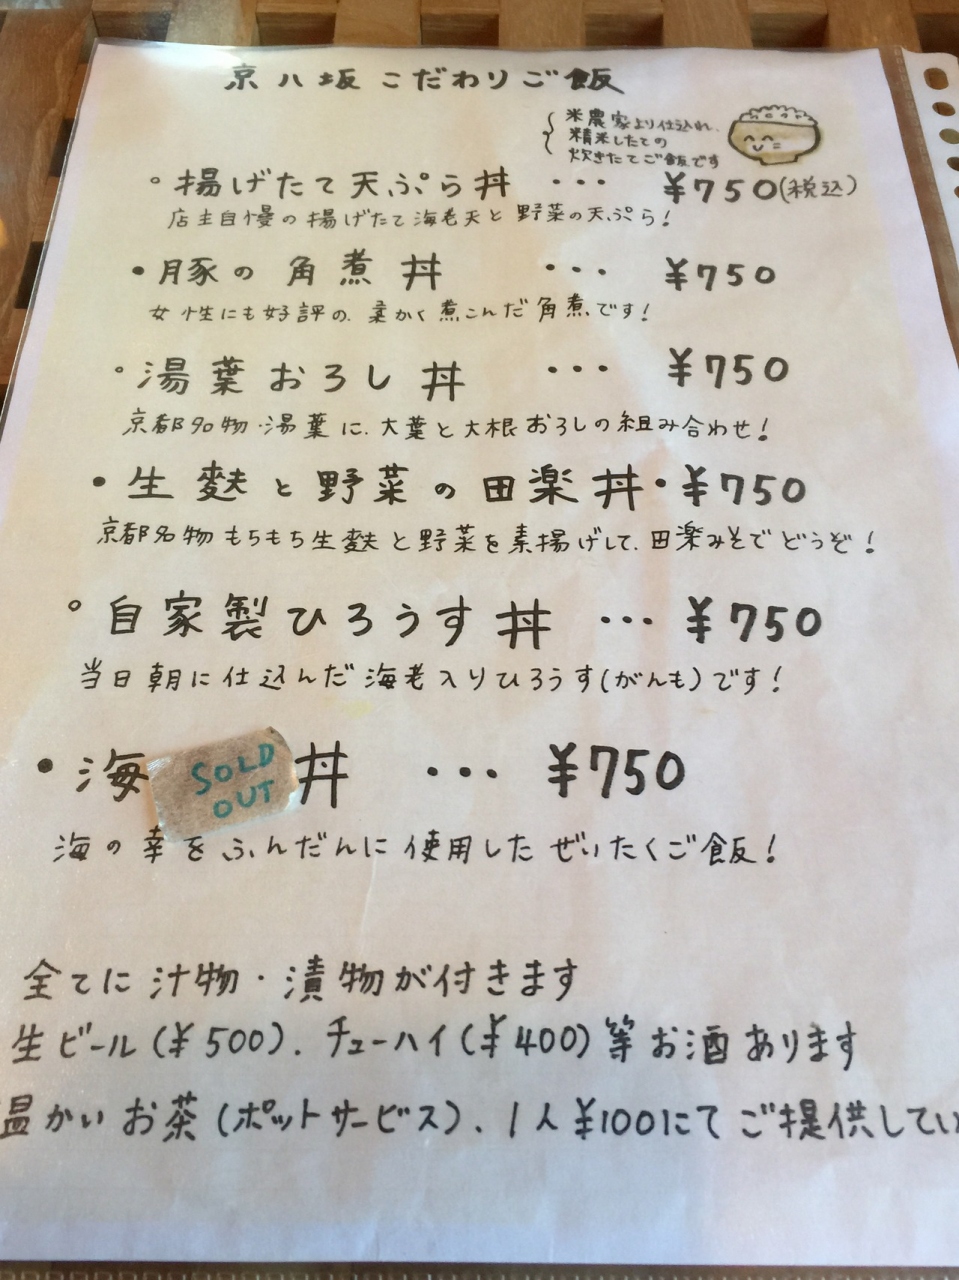 京八坂こだわりご飯
米農家より仕込れ、
精米したての
炊きたてご飯です
◦揚げたて天ぷら丼 ･･･ ¥750(税込)
店主自慢の揚げたて海老天と野菜の天ぷら!
•豚の角煮丼 ･･･ ¥750
女性にも好評の、柔かく煮こんだ角煮です!
◦湯葉おろし丼 ･･･ ¥750
京都名物・湯葉に、大葉と大根おろしの組み合わせ!
•生麩と野菜の田楽丼・¥750
京都名物もちもち生麩と野菜を素揚げして、田楽みそでどうぞ!
◦自家製ひろうす丼 ･･･ ¥750
当日朝に仕込んだ海老入りひろうす(がんも)です!
•海 SOLD OUT 丼 ･･･ ¥750
海の幸をふんだんに使用したぜいたくご飯!
全てに汁物・漬物が付きます
生ビール(¥500)、チューハイ(¥400)等お酒あります
温かいお茶(ポットサービス)、1人¥100にてご提供してい